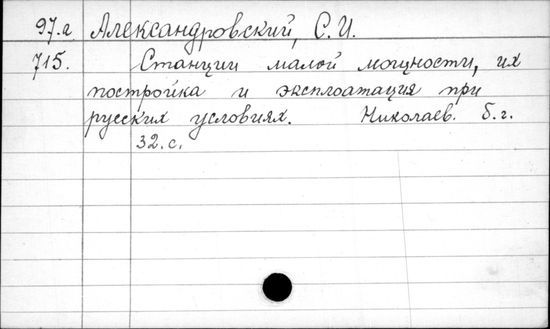 97.а Александровский, С. И.
715. Станции малой мощности, их
постройка и эксплоатация при
русских условиях. Николаев. б. г.
32. с.